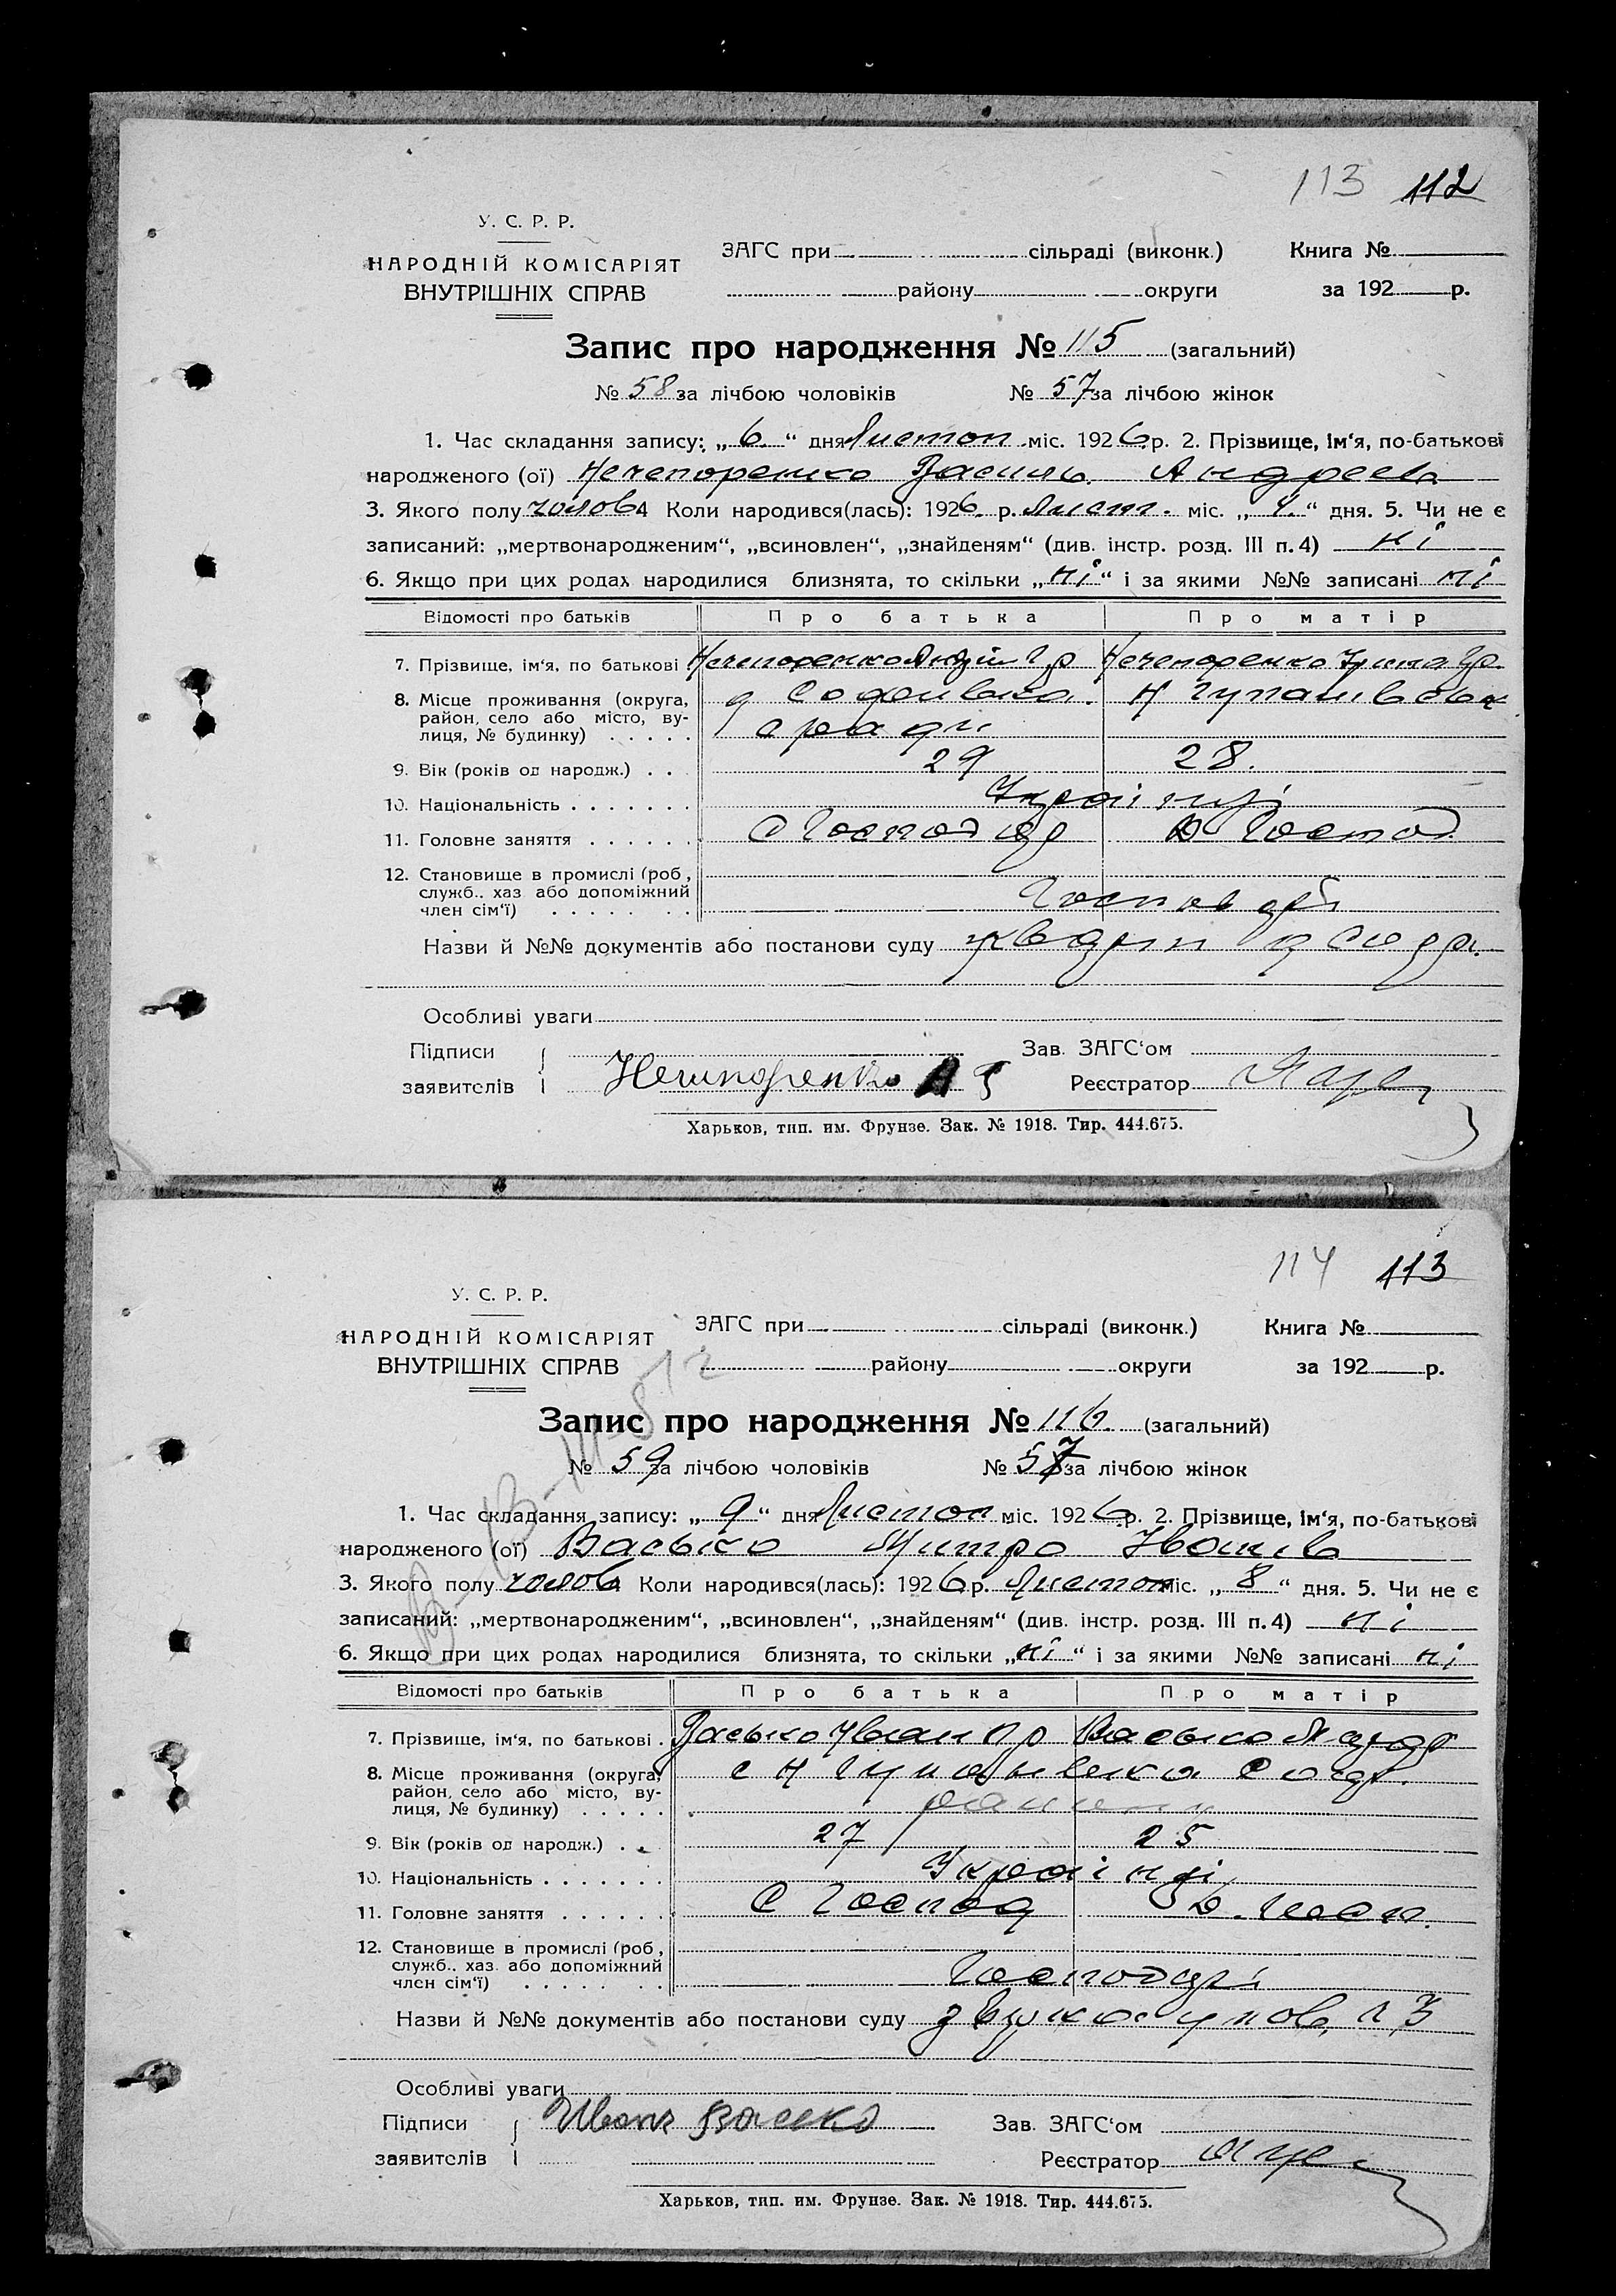 113 112
У. С. Р. Р.
НАРОДНІЙ КОМІСАРІЯТ
ВНУТРІШНІХ СПРАВ
ЗАГС при сільраді (виконк.) Книга №
району округи за 192 р.
Запис про народження № 115 (загальний)
№ 58 за лічбою чоловіків № 57 за лічбою жінок
1. Час складання запису: „ 6 “ дня Листоп. міс. 1926 р. 2. Прізвище, ім‘я, по-батькові
народженого (ої) Нечепоренко Василь Андреев
3. Якого полу чолов 4 Коли народився(лась): 1926 р. Лист. міс. „ 4. “ дня. 5. Чи не є
записаний: „мертвонародженим“, „всиновлен“, „знайденям“ (див. інстр. розд. III п. 4) ні
6. Якщо при цих родах народилися близнята, то скільки „ ні “ і за якими №№ записані ні
Відомості про батьків Про батька Про матір
7. Прізвище, ім‘я, по батькові Нечепоренко Андрій Гр Нечепоренко
8. Місце проживання (округа,
район, село або місто, ву-
лиця, № будинку)
9. Вік (років од народж.) 29 28.
10. Національність Українці
11. Головне заняття С Господар Д Господ.
12. Становище в промислі (роб,
служб.. хаз. або допоміжний
член сім‘ї) Господарі
Назви й №№ документів або постанови суду
Особливі уваги
Підписи Зав. ЗАГС‘ом
заявителів Нечипоренко А Реєстратор
Харьков, тип. им. Фрунзе. Зак. № 1918. Тир. 444.675.
114 113
У. С. Р. Р.
НАРОДНІЙ КОМІСАРІЯТ
ВНУТРІШНІХ СПРАВ
ЗАГС при сільраді (виконк.) Книга №
району округи за 192 р.
Запис про народження № 116. (загальний)
№ 59 за лічбою чоловіків № 57 за лічбою жінок
1. Час складання запису: „ 9 “ дня Листоп міс. 1926 р. 2. Прізвище, ім‘я, по-батькові
народженого (ої) Васько Митро Іванів
3. Якого полу чолов 4 Коли народився(лась): 1926 р. Листоп міс. „ 8 “ дня. 5. Чи не є
записаний: „мертвонародженим“, „всиновлен“, „знайденям“ (див. інстр. розд. III п. 4) ні
6. Якщо при цих родах народилися близнята, то скільки „ ні “ і за якими №№ записані ні
Відомості про батьків Про батька Про матір
7. Прізвище, ім‘я, по батькові Васько Іван Васько
8. Місце проживання (округа,
район, село або місто, ву-
лиця, № будинку)
9. Вік (років од народж.) 27 25
10. Національність Українці
11. Головне заняття С Господ Д. Госп.
12. Становище в промислі (роб,
служб.. хаз. або допоміжний
член сім‘ї) Господарі
Назви й №№ документів або постанови суду
Особливі уваги
Підписи Иван Васько Зав. ЗАГС‘ом
заявителів Реєстратор
Харьков, тип. им. Фрунзе. Зак. № 1918. Тир. 444.675.